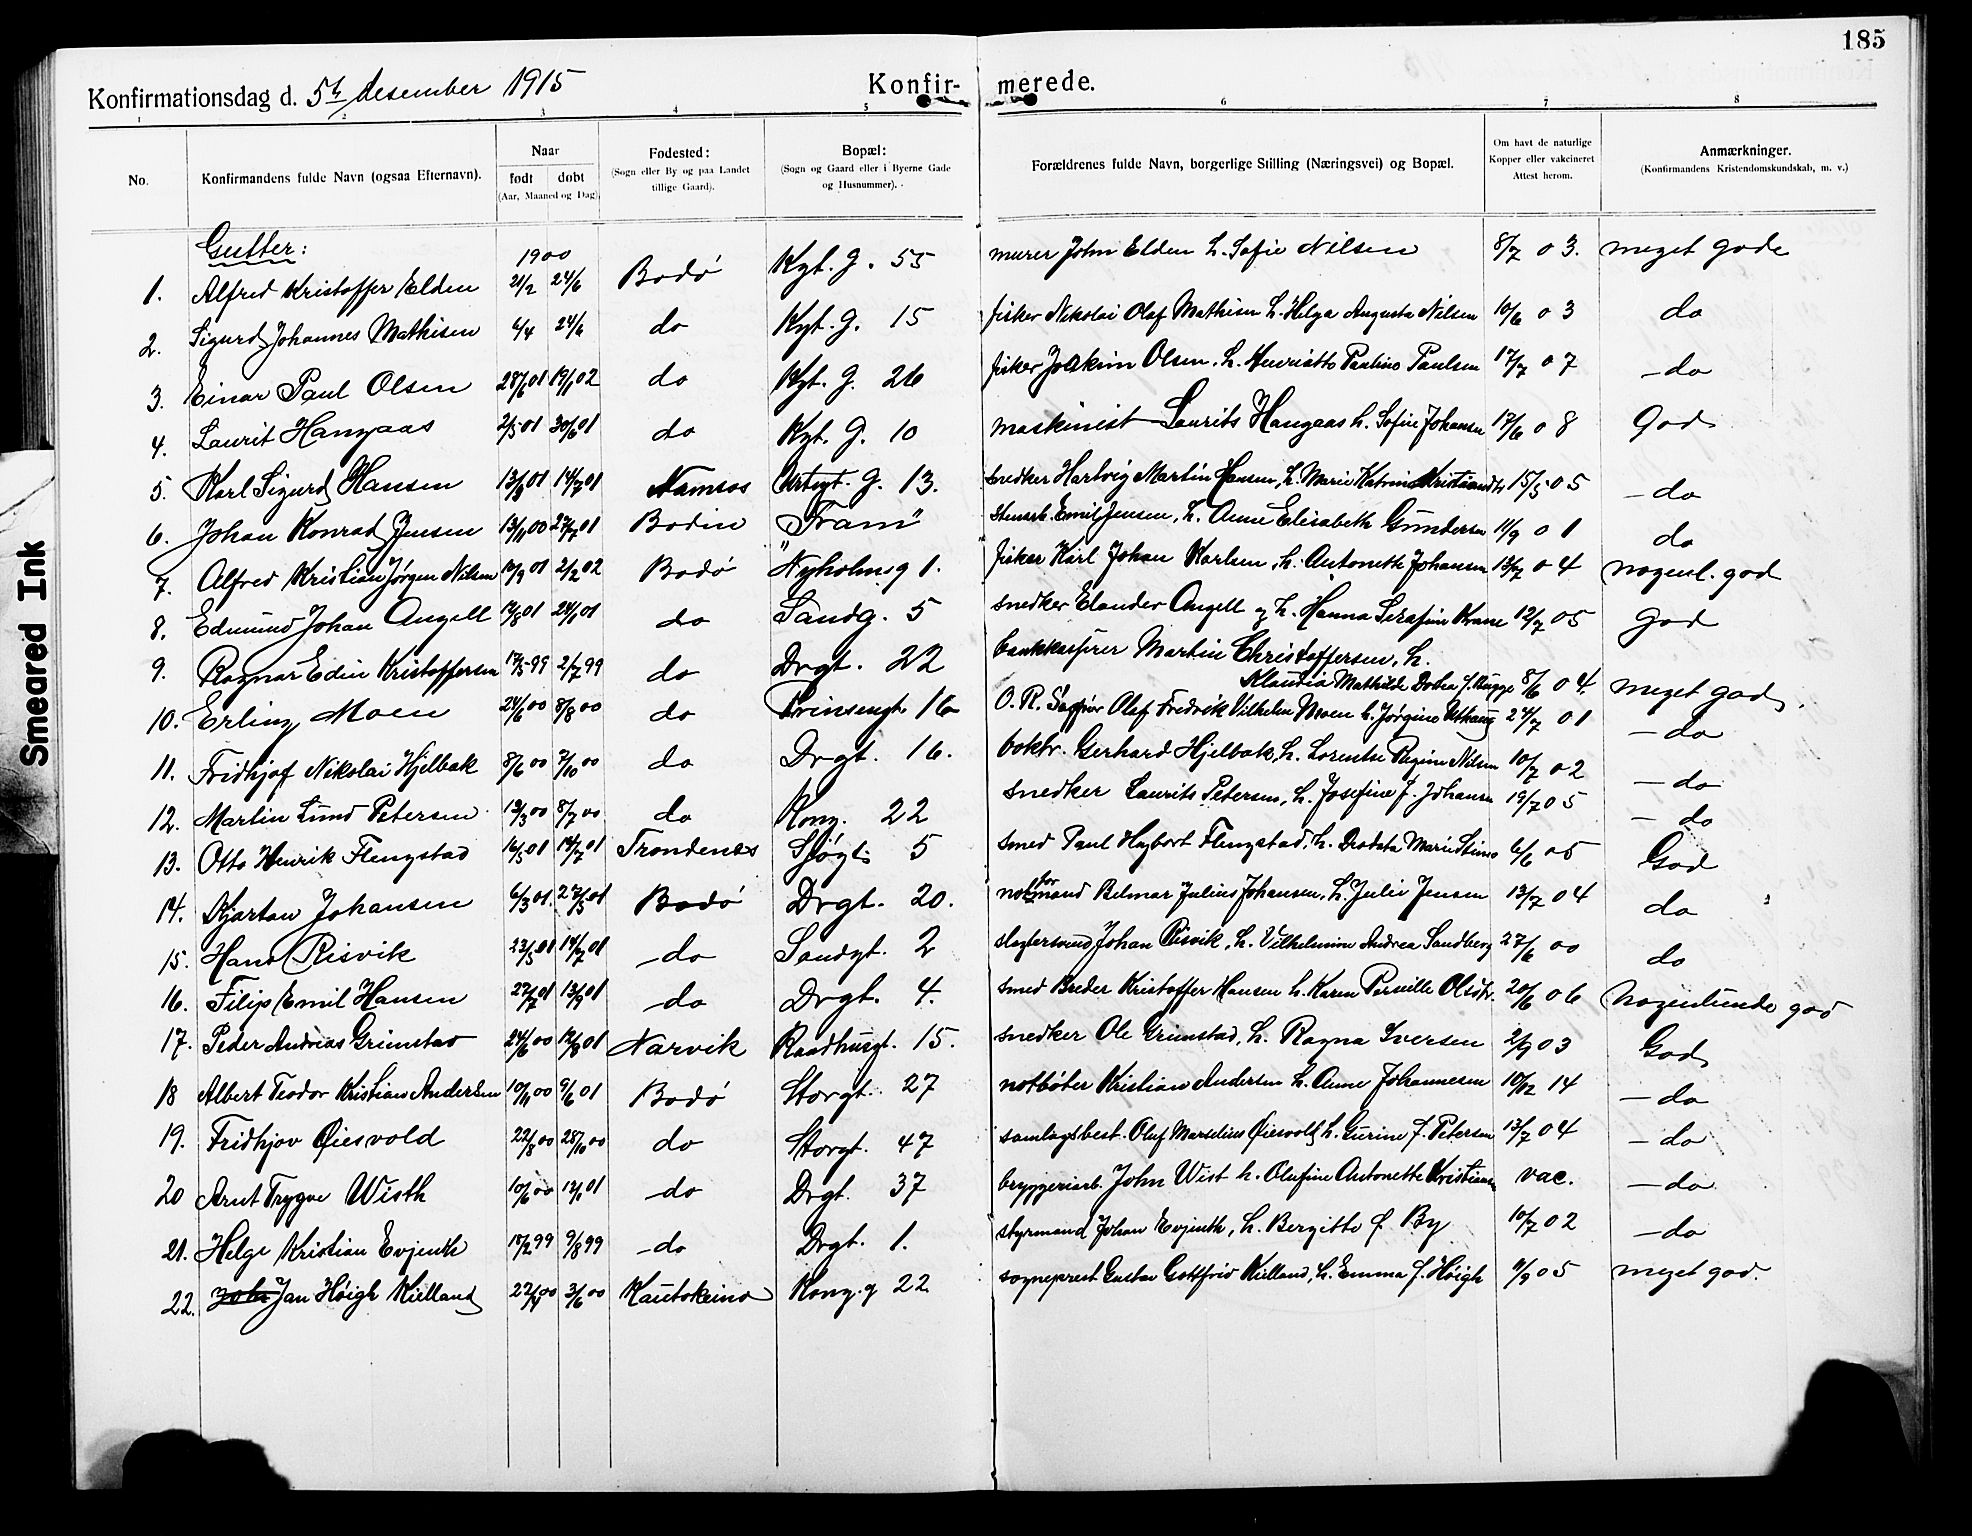 185
Konfirmationsdag d. 5te desember 1915
Konfir- merede.
1 2 3 4 5 6 7 8
No. Konfirmandens fulde Navn (ogsaa Efternavn). Naar født døbt (Aar, Maaned og Dag). Fødested: (Sogn eller By og paa Landet tillige Gaard). Bopæl: (Sogn og Gaard eller i Byerne Gade og Husnummer). Forældrenes fulde Navn, borgerlige Stilling (Næringsvei) og Bopæl. Om havt de naturlige Kopper eller vakcineret Attest herom. Anmærkninger. (Konfirmandens Kristendomskundskab, m. v.)
Gutter: 1900
1. Alfred Kristoffer Elden 21/2 24/6 Bodø Kgt. g. 55 murer John Elden h. Sofie Nilsen 8/7 03. meget gode
2. Sigurd Johannes Mathisen 6/4 24/6 do Kgt. g. 15 fisker Nikolai Olaf Mathisen h. Helga Augusta Nilsen 10/6 03 do
3. Einar Paul Olsen 28/6 01 19/1 02 do Kgt. g. 26 fisker Joakim Olsen. h. Henriette Pauline Paulsen 17/7 07 - do
4. Laurit Hangaas 2/5 01 30/6 01 do Kgt. g. 10 maskinist Laurits Hangaas h. Sofie Johansen 17/6 08 God
5. Karl Sigurd Hansen 13/3 01 14/7 01 Namsos g. 13. snedker Hartvig Martin Hansen, h. Marie Katrine 15/5 05 - do
6. Johan Konrad Jensen 13/11 00 27/7 01 Bodin "Fram" Emil Jensen, h. Anne Elisabeth Gundersen 11/9 01 do
7. Alfred Kristian Jørgen Nilsen 01 2/2 02 Bodø Nyholmsg 1. fisker Karl Johan Karlsen, h. Antonette Johansen 13/7 04 nogenl. god
8. Edmund Johan Angell 01 01 do Sandg. 5 snedker Elander Angell og h. Hanna Serafine Krane 12/7 05 God
9. Ragnar Edin Kristoffersen 17/5 99 2/7 99 do Drgt. 22 bankkasserer Martin Christoffersen, h.
Klaudia Mathilde Dorthea f. Bugge 8/6 04. meget god
10. Erling Moen 24/6 00 8/8 00 do Prinsensgt. 16 O. R. Olaf Fredrik Vilhelm Moen h. Jørgine 24/7 01 - do
11. Fridhjof Nikolai Hjelbak 8/6 00 7/10 00 do Drgt. 16. boktr. Gerhard Hjelbak, h. Lorentse Regine Nilsen 10/7 02 - do
12. Martin Lund Petersen 13/3 00 8/7 00 do Kong. 22 snedker Laurits Petersen, h. Josefine f. Johansen 19/7 05 - do
13. Otto Henrik Flengstad 16/5 01 14/7 01 Trondenes Sjøgt. 5 smed Paul Hagbart Flengstad, h. Marie 6/6 05 God
14. Kjartan Johansen 6/3 01. 27/5 01 Bodø Drgt. 20. notformand Bilmar Julius Johansen, h. Julie Jensen 13/7 04 do
15. Hans Risvik 23/5 01 14/7 01 - do Sandgt. 2 slagtersvend Johan Risvik, h. Vilhelmine Andrea Sandberg 27/6 00 do
16. Filip Emil Hansen 27/7 01 13/9 01 - do Drgt. 4. smed Breder Kristoffer Hansen h. Karen Pernille Olsdtr. 20/6 06 Nogenlunde god
17. Peder Andreas Grimstad 24/6 00 12/8 01 Narvik Raadhusgt. 15. snedker Ole Grimstad, h. Ragna Iversen 2/9 03 God
18 Albert Teodor Kristian Andersen 10/11 00 9/6 01 Bodø Storgt. 27 notbøter Kristian Andersen h. Anne Johannesen 10/12 14 - do
19. Fridhjov Øiesvold 22/8 00 28/10 00 do Storgt. 47 samlagsbest. Oluf Marselius Øiesvold, h. Gurine f. Petersen 13/7 04 - do
20 Arnt Trygve Wisth 10/6 00 13/1 01 - do Drgt. 37 bryggeriarb. John Wist h. Olufine Antonette Kristiansen vac. - do
21. Helge Kristian Evjenth 18/2 99 9/8 99 - do Drgt. 1. styrmand Johan Evjenth, h. Bergitte f. By 10/7 02 - do
22. John Jan Høigh Kielland 22/4 00 3/6 00 Kautokeino Kong. g 22 sogneprest Gustav Gottfrid Kielland, h. Emma f. Høigh 11/9 05 meget god.
Smeared Ink